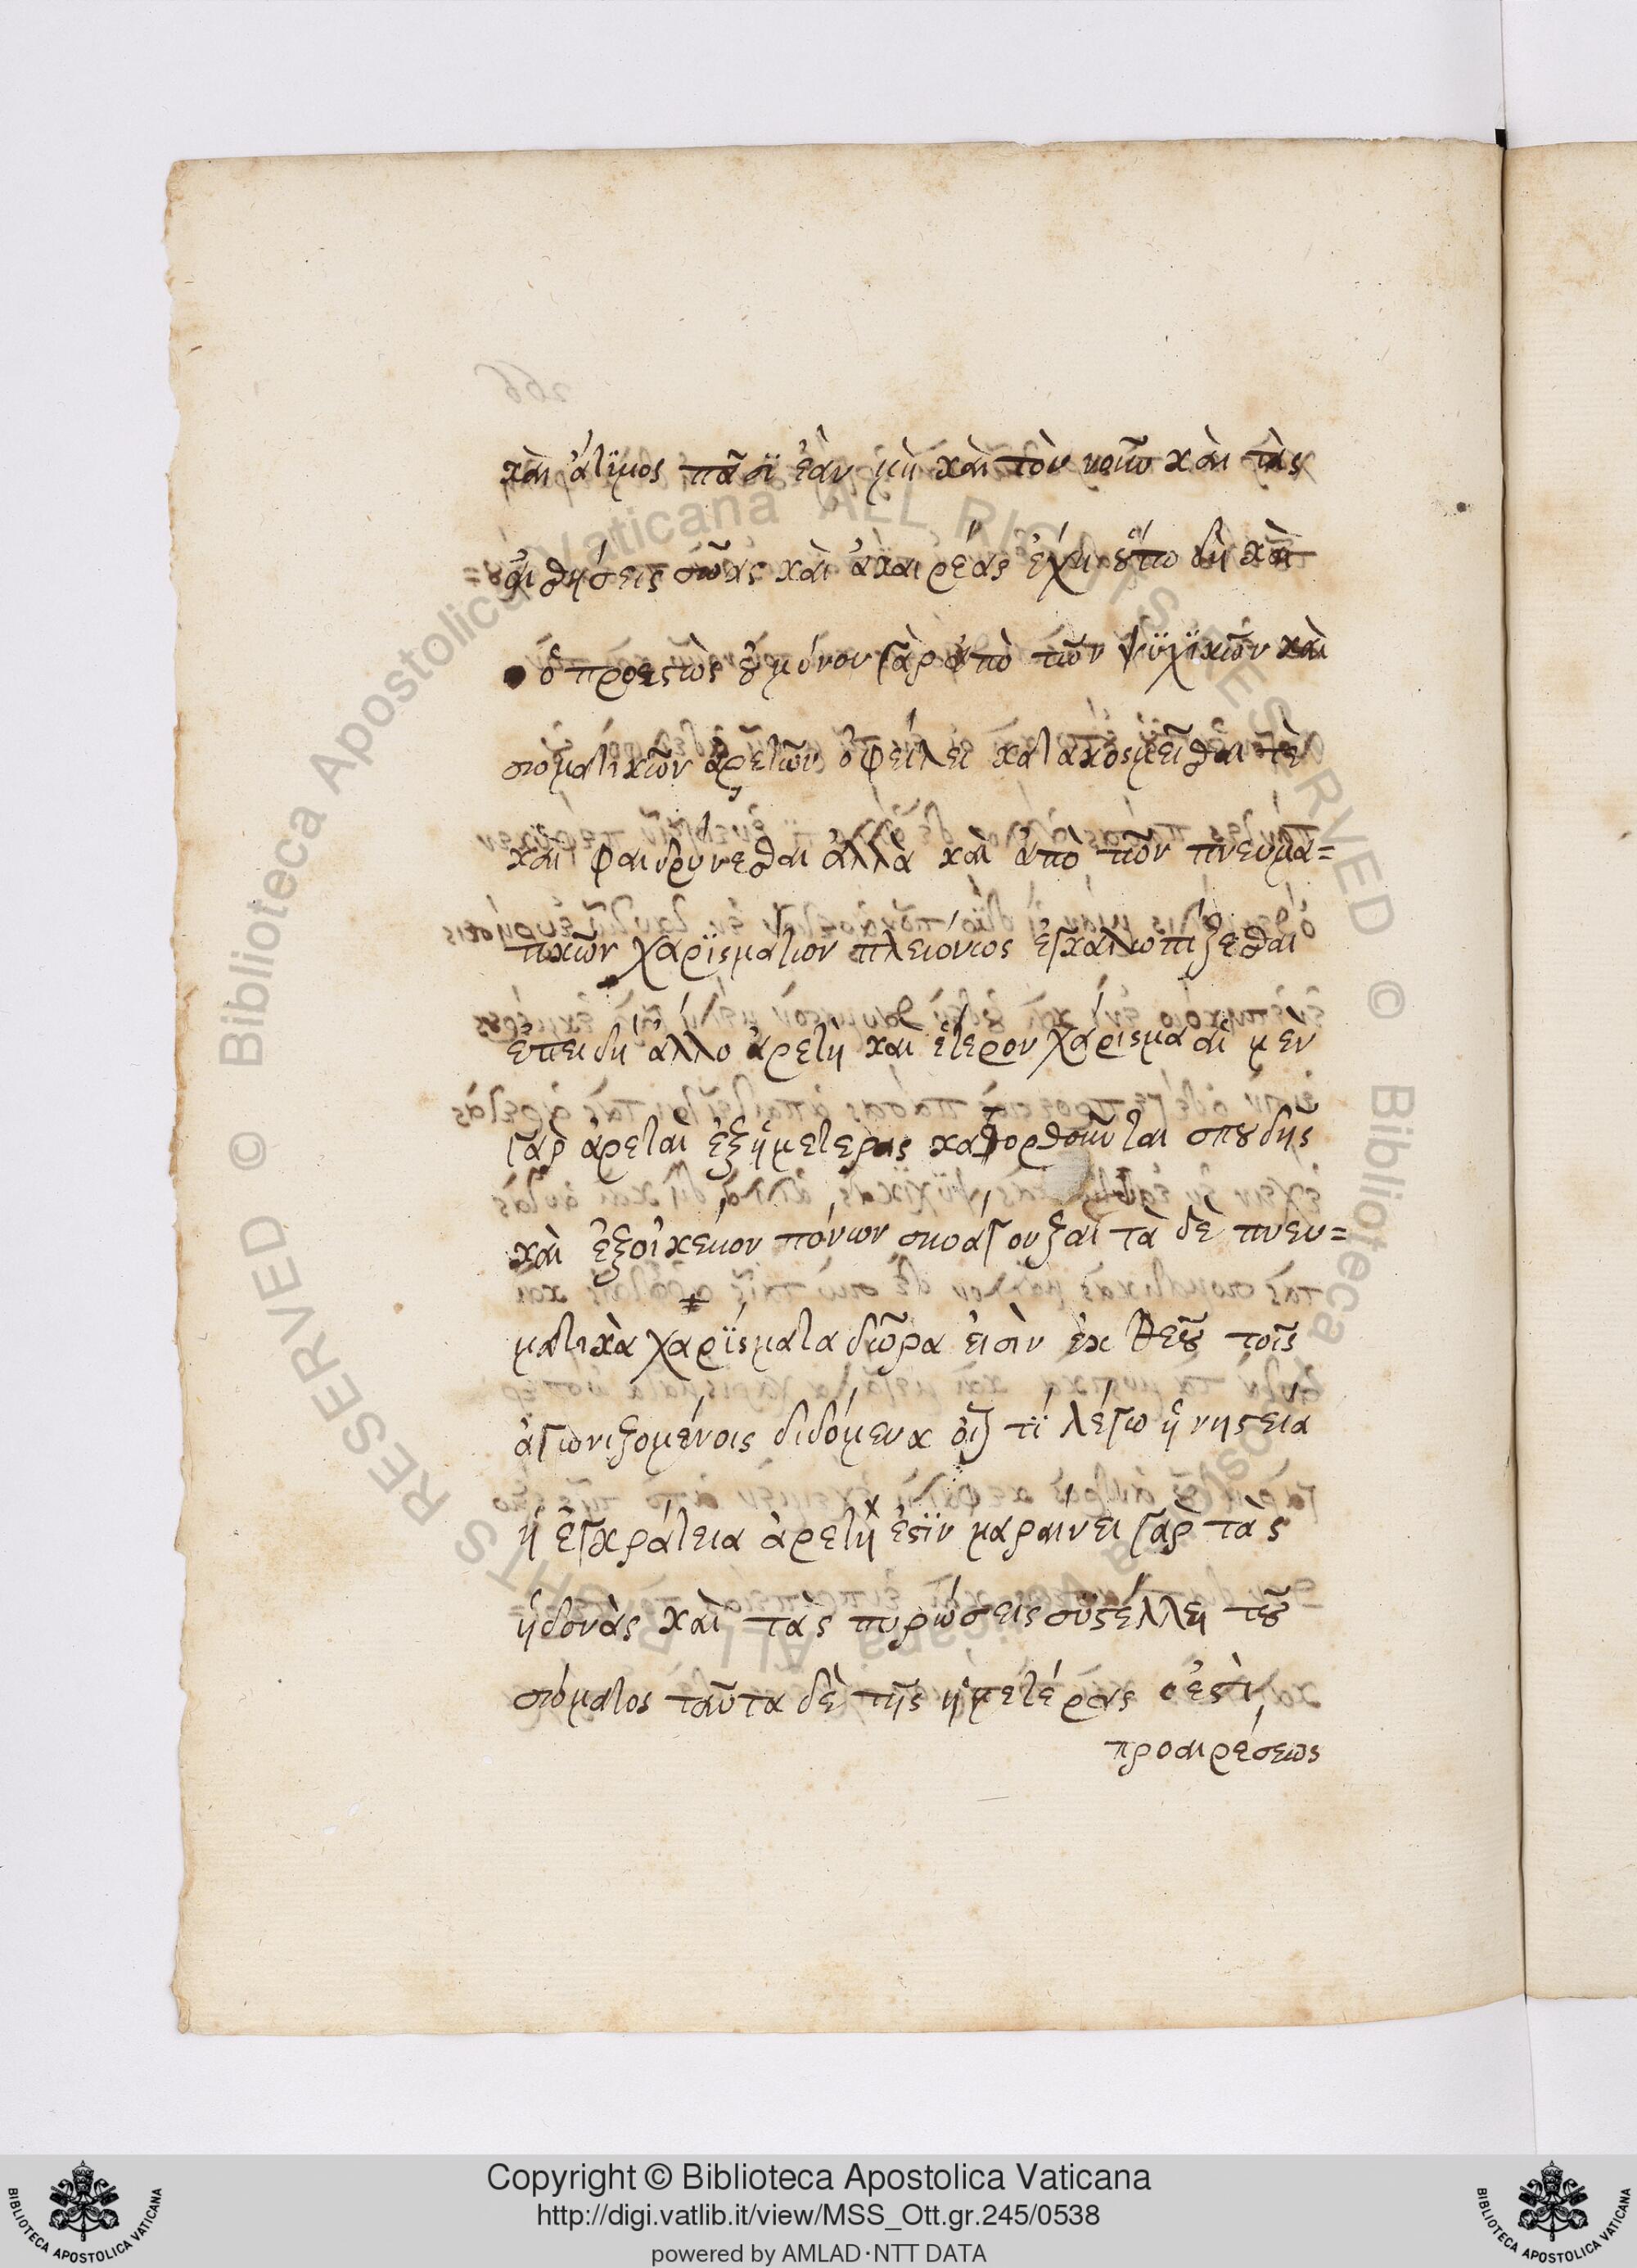 καὶ ἄτϊμος πᾶσϊ ἐὰν μὴ καὶ τὸν νοῦν καὶ τὰς
αἰσθήσεις σώας καὶ ἀκαιρέας ἔχη οὕτω δὴ καὶ
ὁ προεστὼς οὐ μόνον γὰρ ἀπὸ τῶν ψϋχϊκῶν καὶ
σωματικῶν ἀρετῶν ὀφείλει κατακοσμεῖσθαι τὲ
καὶ φαιδρύνεσθαι ἀλλὰ καὶ ἀπὸ τῶν πνευμα=
τικῶν χαρϊσμάτων πλειόνως ἐγκαλωπίζεσθαι
ἐπειδὴ ἄλλο ἀρετὴ καὶ ἕτερον χάρισμα αἱ μὲν
γὰρ ἀρεταὶ ἐξ ἡμετέρας κατορθοῦνται σπουδῆς
καὶ ἐξ οἰκείων πόνων συνάγονται τὰ δὲ πνευ=
ματικὰ χαρϊσματα δῶρα εἰσὶν ἐκ θεοῦ τοῖς
ἀγωνιζομένοις διδόμενα οἷον τϊ λέγω ἡ νηστεία
ἡ ἐγκράτεια ἀρετὴ ἐστϊν μαραίνει γὰρ τὰς
ἡδονὰς καὶ τὰς πυρώσεις συστέλλει τοῦ
σώματος ταῦτα δὲ τῆς ἡμετέρας ἐστὶ
προαιρέσεως
Copyright © Biblioteca Apostolica Vaticana
http://digi.vatlib.it/view/MSS_Ott.gr.245/0538
powered by AMLAD·NTT DATA
BIBLIOTECA APOSTOLICA VATICANA
BIBLIOTECA APOSTOLICA VATICANA
© Biblioteca Apostolica Vaticana ALL RIGHTS RESERVED
© Biblioteca Apostolica Vaticana ALL RIGHTS RESERVED